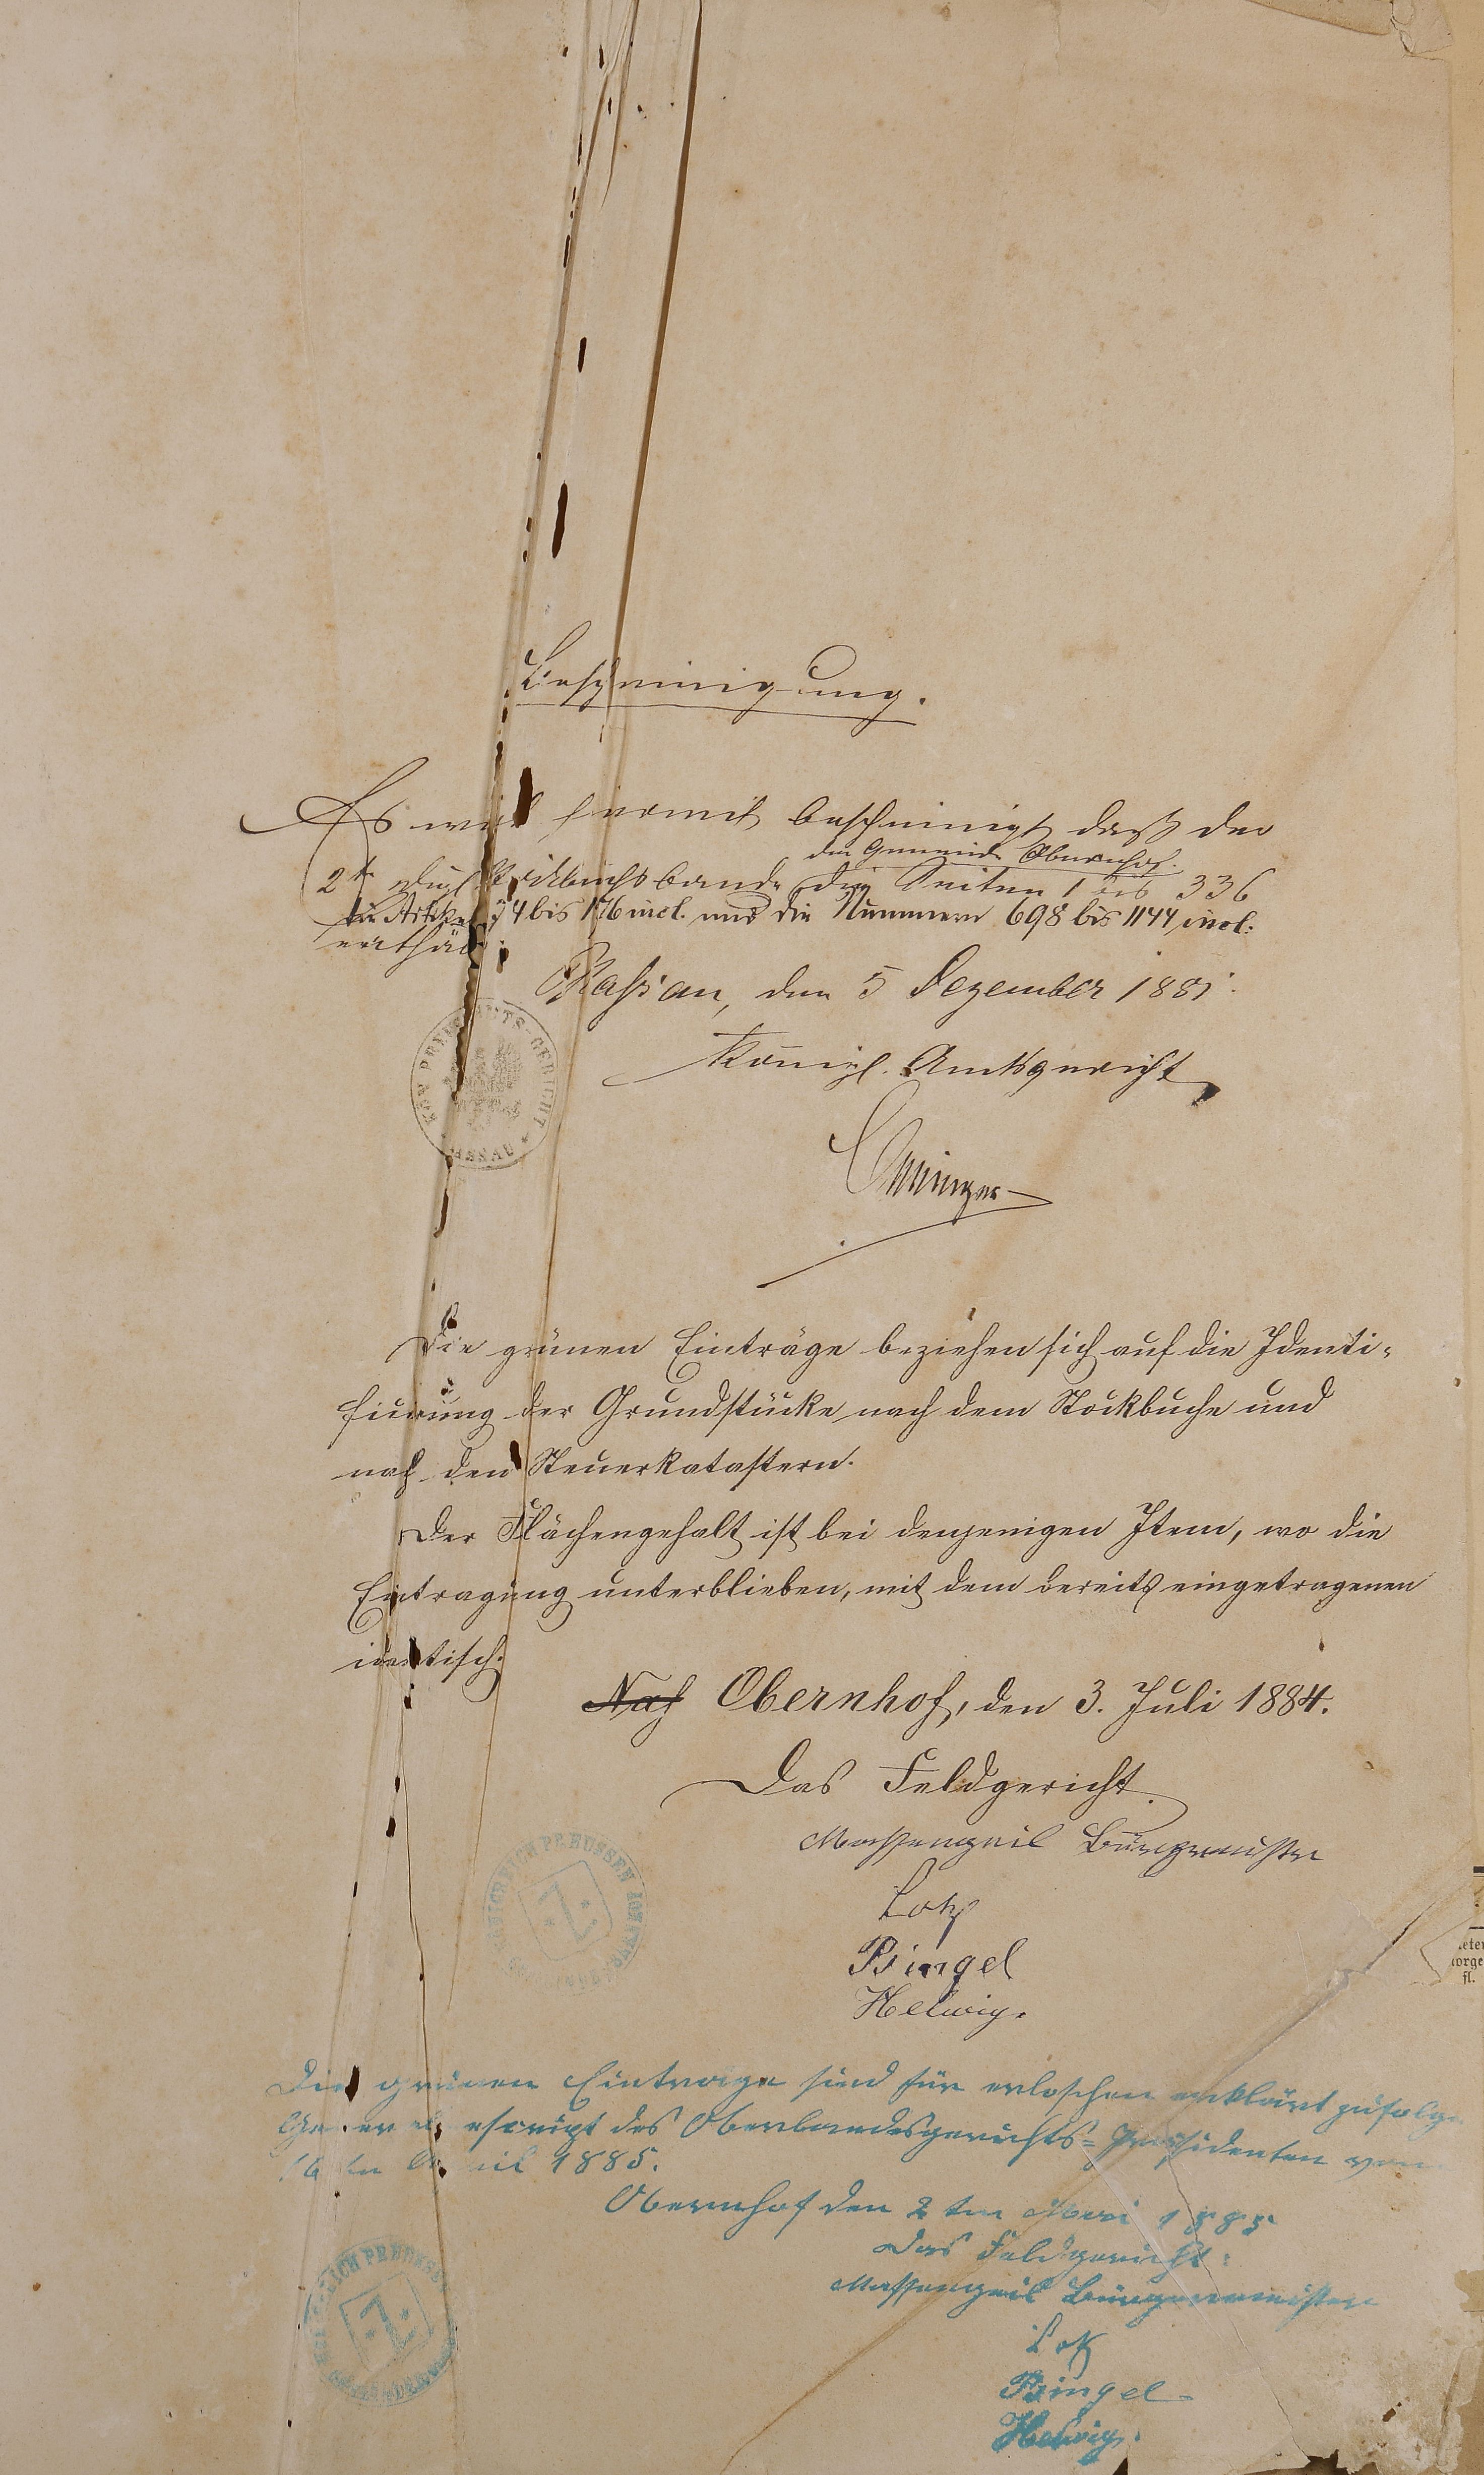 Bescheinigung.
Es wird hiermit bescheinigt daß der
der Gemeinde Obernhof.
2te Stockbuchsbande die Seiten 1 bis 336
die Artikel 74 bis 176 incl. und die Nummern 698 bis 1144 incl.
enthält.
Nassau, den 5 Dezember 1881.
Königl. Amtsgericht
KÖN. PREUSS. AMTS-GERICHT * NASSAU *
Die grünen Einträge beziehen sich auf die Identi-
fizirung der Grundstücke nach dem Stockbuche und
nach den Steuerkatastern.
Der Flächengehalt ist bei denjenigen Item, wo die
Eintragung unterblieben, mit dem bereits eingetragenen
identisch.
Nach Obernhof, den 3. Juli 1884.
Das Feldgericht.
Massengeil Bürgermeister
Lotz
Bingel
Helwig.
KÖNIGREICH PREUSSEN
Die grünen Eintrage sind für erloschen erklärt zufolge
Generalrescript des Oberlandesgerichts-Präsidenten vom
16ten April 1885.
Obernhof den 2ten Mai 1885
Das Feldgericht:
Massengeil Bürgermeister
Lotz
Bingel
Helwig.